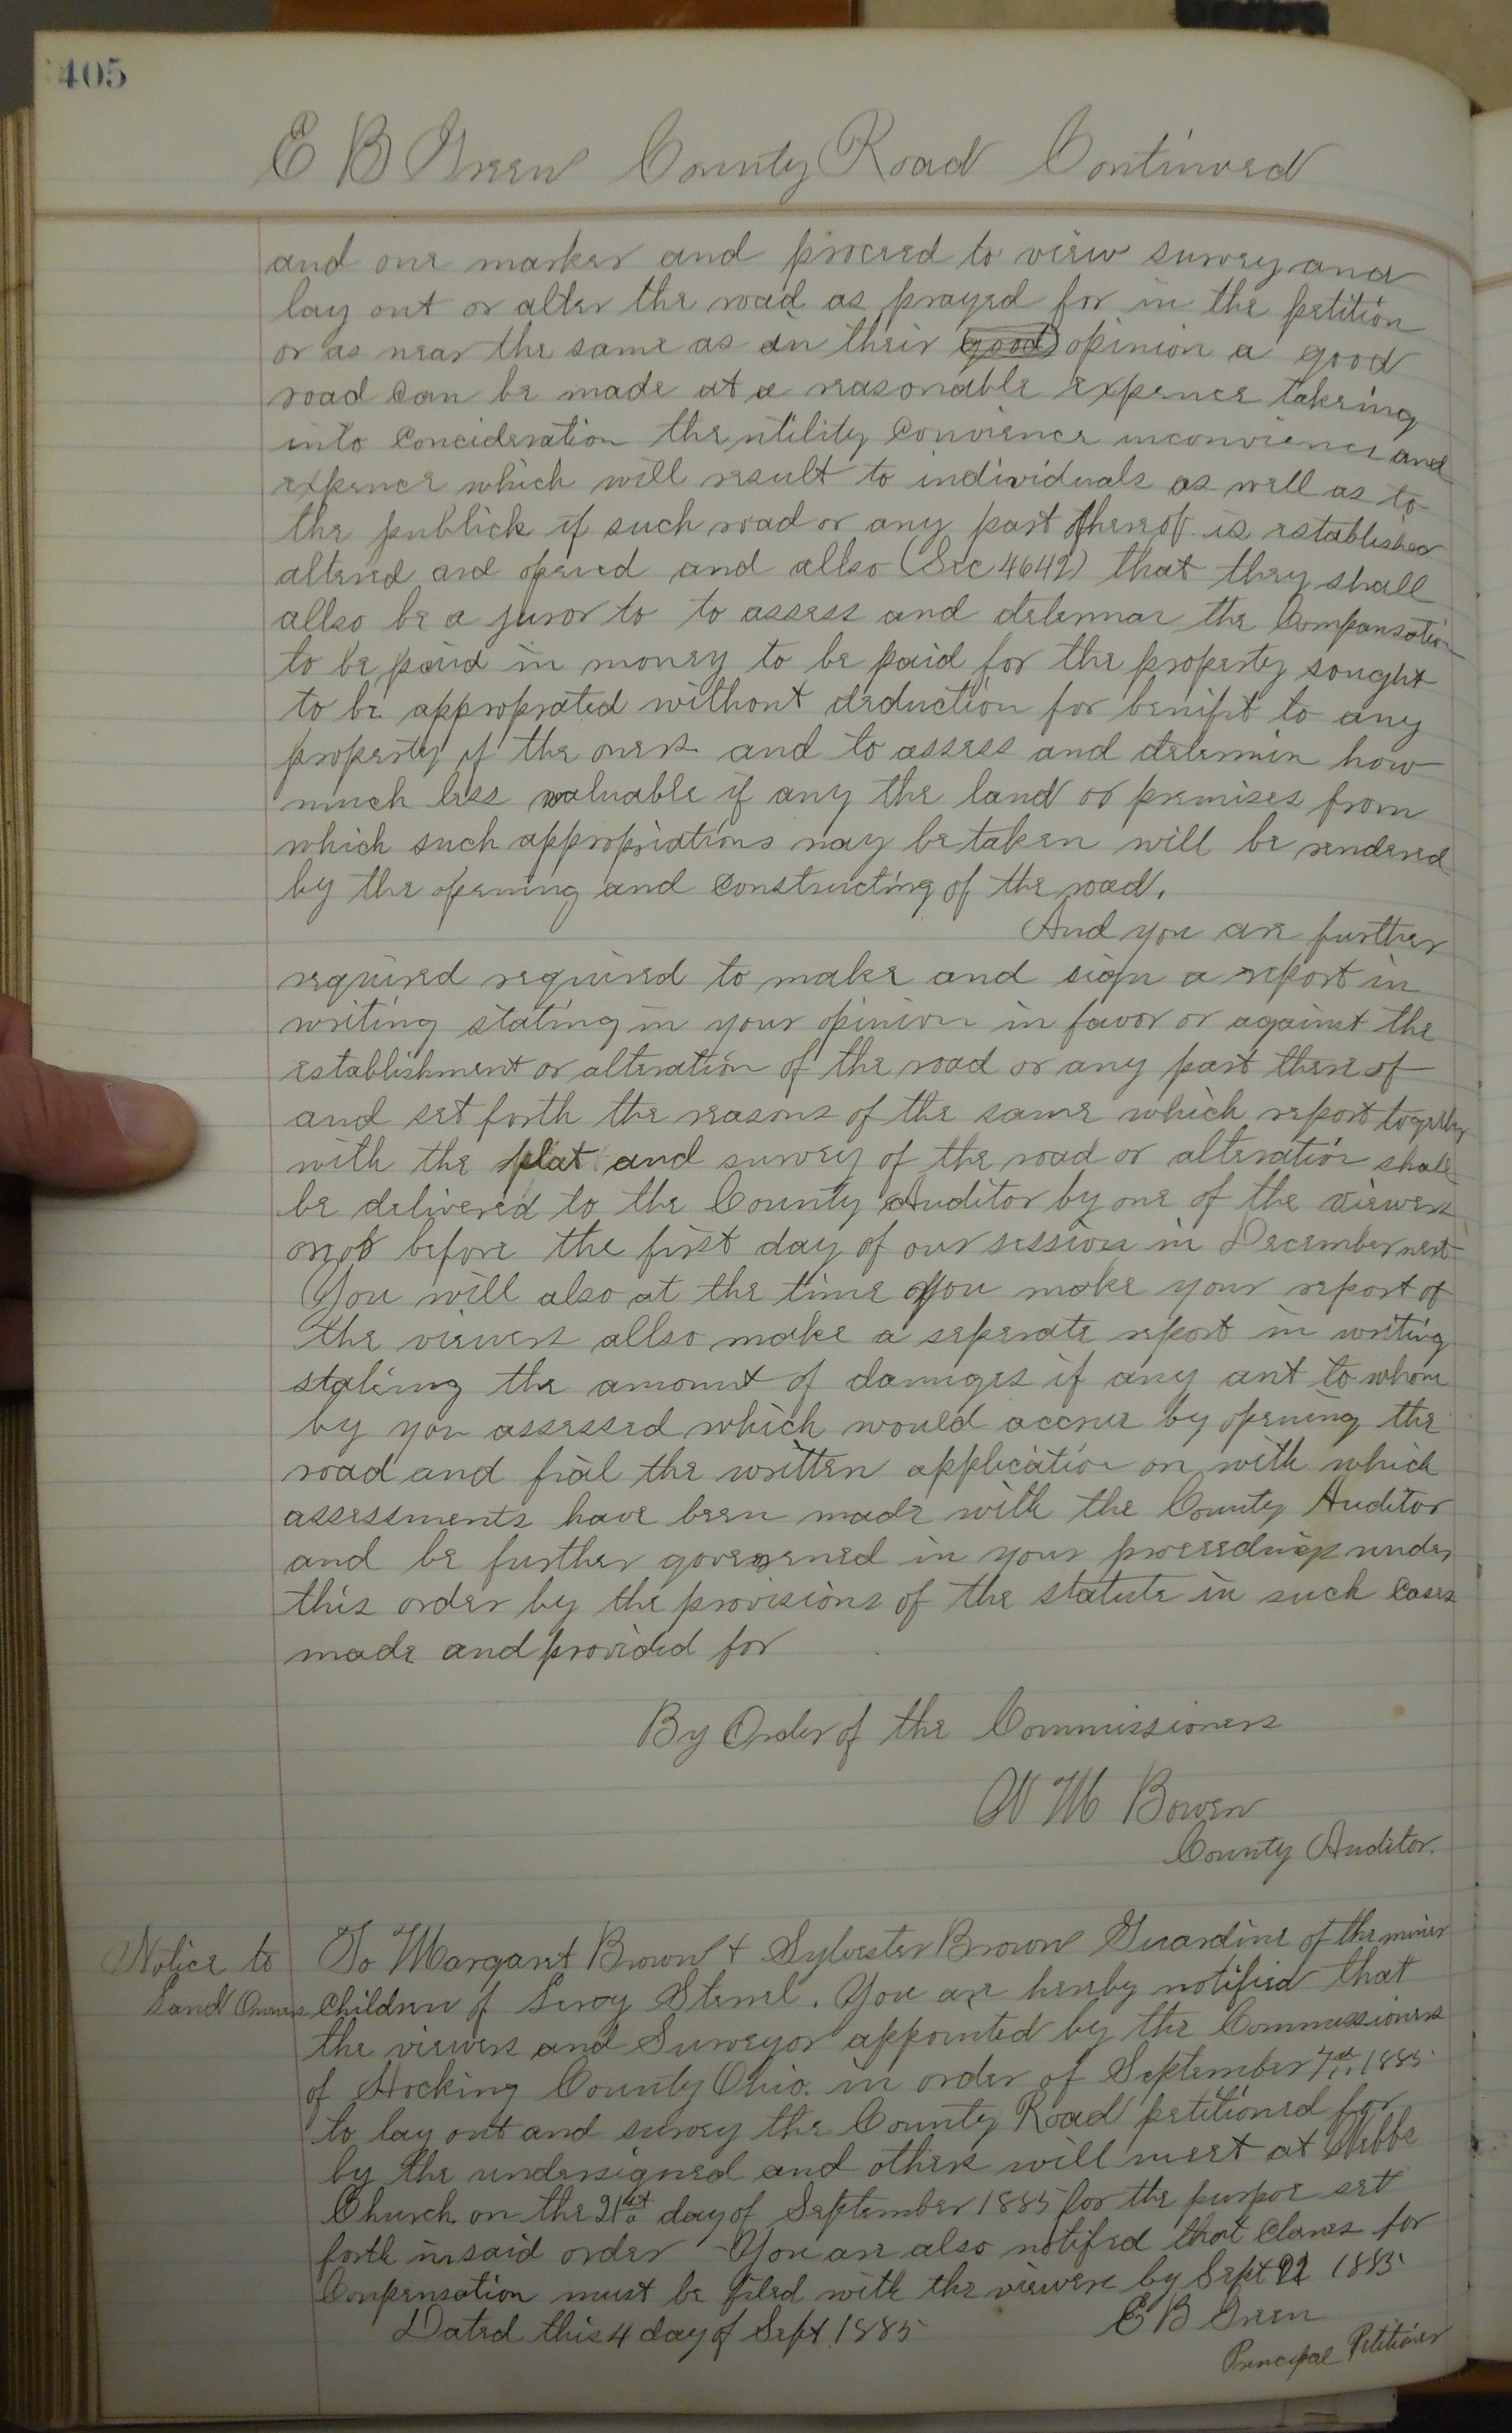 405
E B Green County Road Continued
and one marker and proceed to view survey and
lay out or alter the road as prayed for in the petition
or as near the same as in their good opinion a good
road can be made at a reasonable expence takeing
into concideration the utility convience inconvience and
expence which will result to individuals as well as to
the publick if such road or any part thereof is established
altered and opened and allso (Sec 4642) that they shall
allso be a juror to to assess and determar the Compansation
to be paid in money to be paid for the property sought
to be approprated without deduction for benifit to any
property of the oners and to assess and determin how
much less valuable if any the land or premises from
which such appropriations may be taken will be rendered
by the opening and constructing of the road.
And you are further
required required to make and sign a report in
writing stating in your opinion in favor or against the
establishment or alteration of the road or any part there of
and set forth the reasons of the same which report together
with the plat and survey of the road or alteration shall
be delivered to the County Auditor by one of the viewers
on or before the first day of our session in December next
You will also at the time you make your report of
the viewers allso make a seperate report in writing
stateing the amount of damages if any ant to whom
by you assessed which would accrue by opening the
road and fial the written application on with which
assessments have been made with the County Auditor
and be further governed in your proceedings under
this order by the provisions of the statute in such cases
made and provided for
By Order of the Commissioners
W M Bowen
County Auditor.
Notice to
Land Owners
To Margaret Brown & Sylvester Brown Guardine of the miner
Children of Leroy . You are hereby notified that
the viewers and Surveyor appointed by the Commissioners
of Hocking County Ohio. in order of September 7th 1885
to lay out and survey the County Road petitioned for
by the undersigned and others will meet at
Church on the 21st day of September 1885 for the purpoe set
forth in said order - You are also notifed that clames for
Conpensation must be filed with the viewers by Sept 22 1885
Dated this 4 day of Sept 1885
E B Green
Principal Petitioner